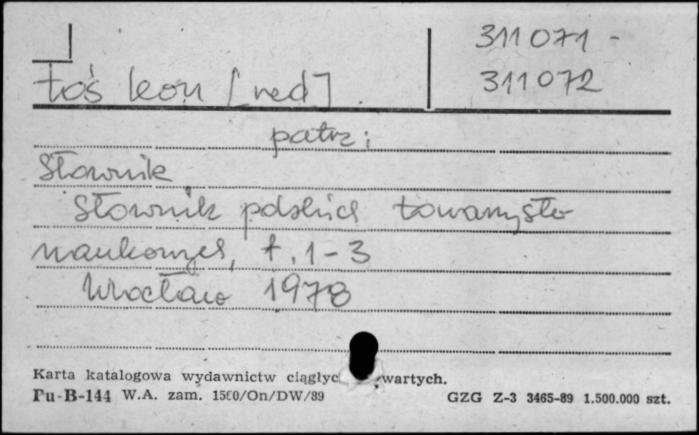 311071 -
311072
Łoś Leon [red]
patrz:
Słownik
Słownik polskich towarzystw
naukowych, t. 1-3
Wrocław 1978
Karta katalogowa wydawnictw ciągłyc wartych.
Pu-B-144 W.A. zam. 1560/On/DW/89 GZG Z-3 3465-89 1.500.000 szt.